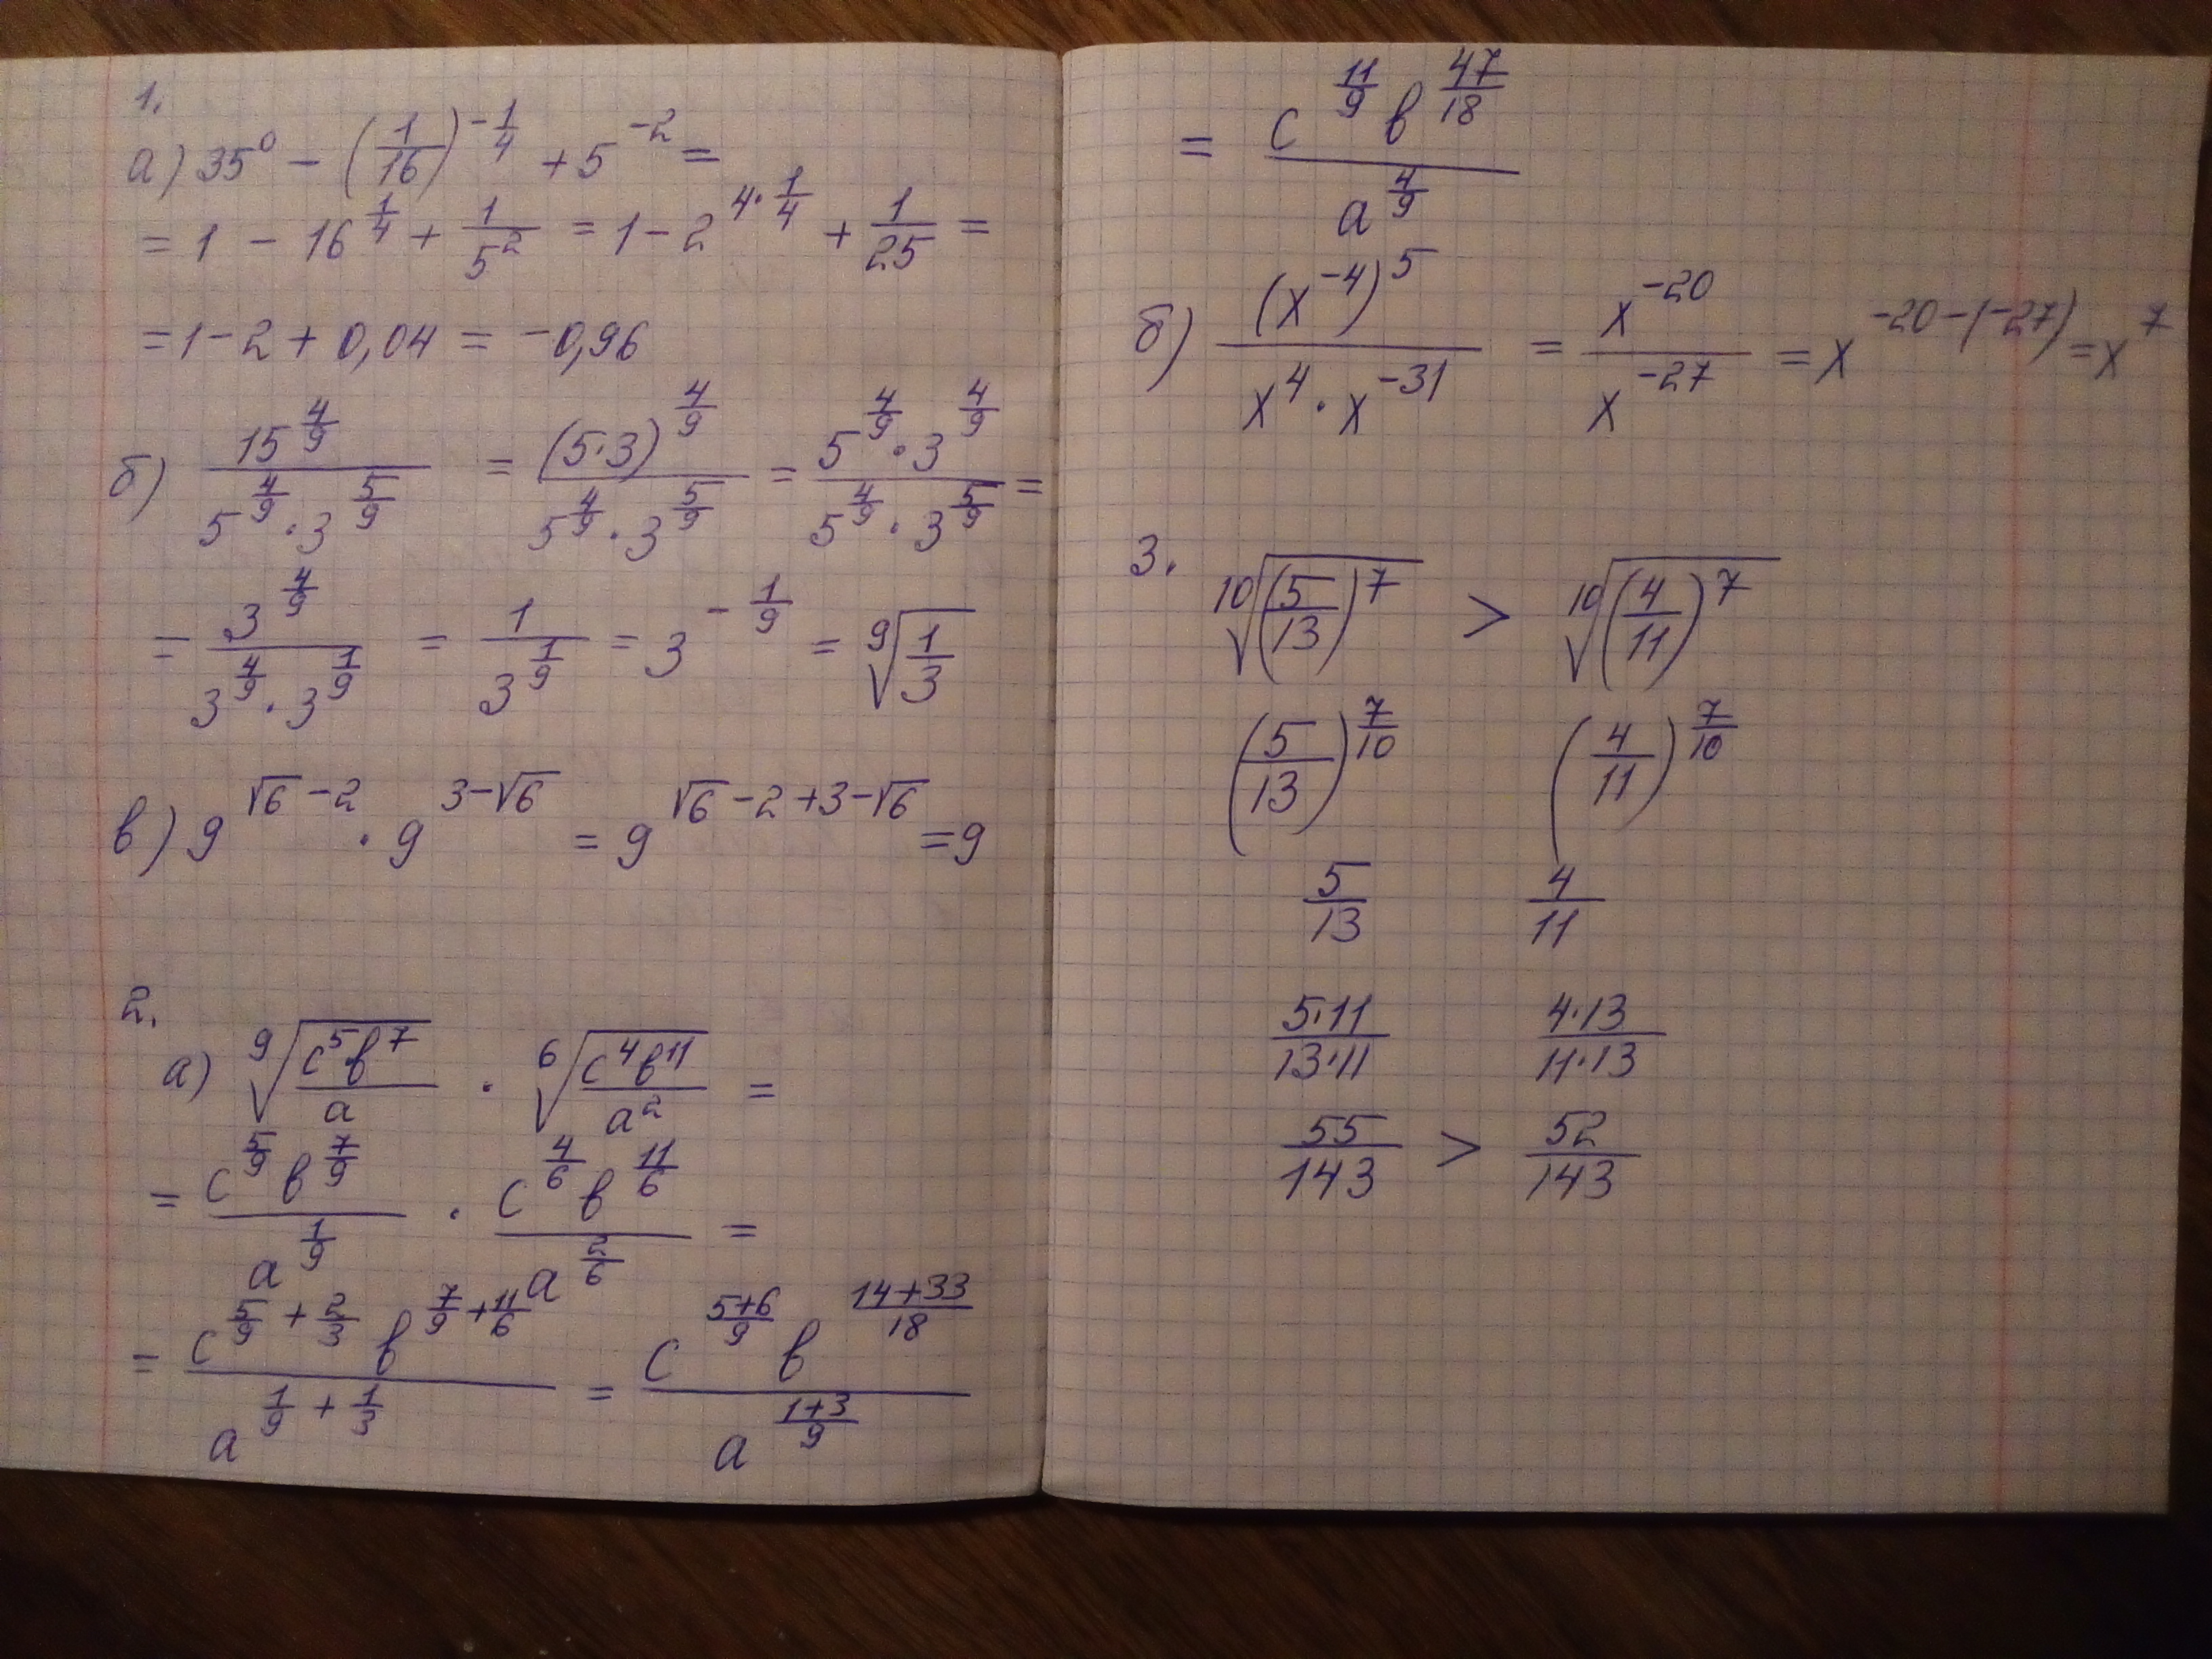 1.
а) 35⁰ − (1/16)^(−1/4) + 5^(−2) =
= 1 − 16^(1/4) + 1/5² = 1 − 2^(4·1/4) + 1/25 =
= 1 − 2 + 0,04 = −0,96
б) 15^(4/9) / (5^(4/9) · 3^(5/9)) = (5·3)^(4/9) / (5^(4/9) · 3^(5/9)) = (5^(4/9) · 3^(4/9)) / (5^(4/9) · 3^(5/9)) =
= 3^(4/9) / (3^(4/9) · 3^(1/9)) = 1 / 3^(1/9) = 3^(−1/9) = ⁹√(1/3)
в) 9^(√6 − 2) · 9^(3 − √6) = 9^(√6 − 2 + 3 − √6) = 9
2.
а) ⁹√(c⁵в⁷ / a) · ⁶√(c⁴в¹¹ / a²) =
= (c^(5/9) в^(7/9)) / a^(1/9) · (c^(4/6) в^(11/6)) / a^(2/6) =
= (c^(5/9 + 2/3) в^(7/9 + 11/6)) / a^(1/9 + 1/3) = (c^((5+6)/9) в^((14+33)/18)) / a^((1+3)/9)
= (c^(11/9) в^(47/18)) / a^(4/9)
б) (x^(−4))^5 / (x^4 · x^(−31)) = x^(−20) / x^(−27) = x^(−20−(−27)) = x^7
3.
¹⁰√((5/13)^7) > ¹⁰√((4/11)^7)
(5/13)^(7/10) (4/11)^(7/10)
5/13 4/11
5·11/13·11 4·13/11·13
55/143 > 52/143